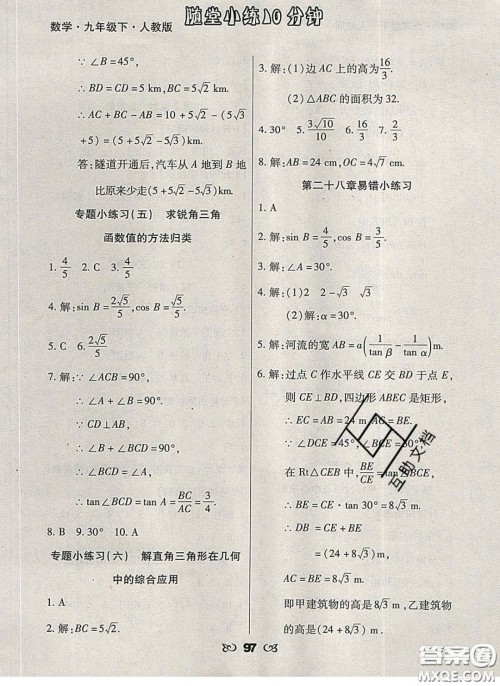 数学·九年级下·人教版
随堂小练10分钟
∵ ∠B=45°,
∴ BD=CD=5 km,BC=5√2 km.
∴ AC+BC-AB=10+5√2-(5√3
+5)=(5+5√2-5√3)km.
答:隧道开通后,汽车从 A 地到 B 地
比原来少走(5+5√2-5√3)km.
专题小练习(五) 求锐角三角
函数值的方法归类
1. 4/5 2. C 3. 4/5
4. 解:sin B=2√5/5,cos B=√5/5.
5. C 6. 2√5/5
7. 解:∵ ∠ACB=90°,
∴ ∠A+∠B=90°.
∵ CD⊥AB,
∴ ∠B+∠BCD=90°.
∴ ∠BCD=∠A,
∴ tan∠BCD=tan A=BC/AC=3/4.
8. B 9. 30° 10. A
专题小练习(六) 解直角三角形在几何
中的综合应用
1. A
2. 解:BC=5√2.
3. 解:(1)边 AC 上的高为16/3.
(2)△ABC 的面积为 32.
4. 30° 5. 3√10/10 6. 16/3 7. 2/3
8. 解:AB=24 cm,OC=4√7 cm.
第二十八章易错小练习
1. A
2. 解:sin B=4/5,cos B=3/5.
3. 解:∠A=30°.
4. 解:(1)2 2-√3 √3
(2)解:α=30°.
5. 解:河流的宽 AB=a(1/tan β-1/tan α)m.
6. 解:过点 C 作水平线 CE 交 BD 于点 E,
则 CE⊥BD,四边形 ABEC 是矩形,
∴ EC=AB=24 m,AC=BE.
∵ ∠DCE=45°,∠BCE=30°,
在 Rt△CEB 中,BE/CE=tan∠BCE,
∴ BE=CE·tan 30°=8√3 m.
∴ DB=CE+BE
=(24+8√3)m,
AC=BE=8√3 m.
即甲建筑物的高是 8√3 m,乙建筑物
的高是(24+8√3)m.
互助文档
97
答案圈
MXQE.COM